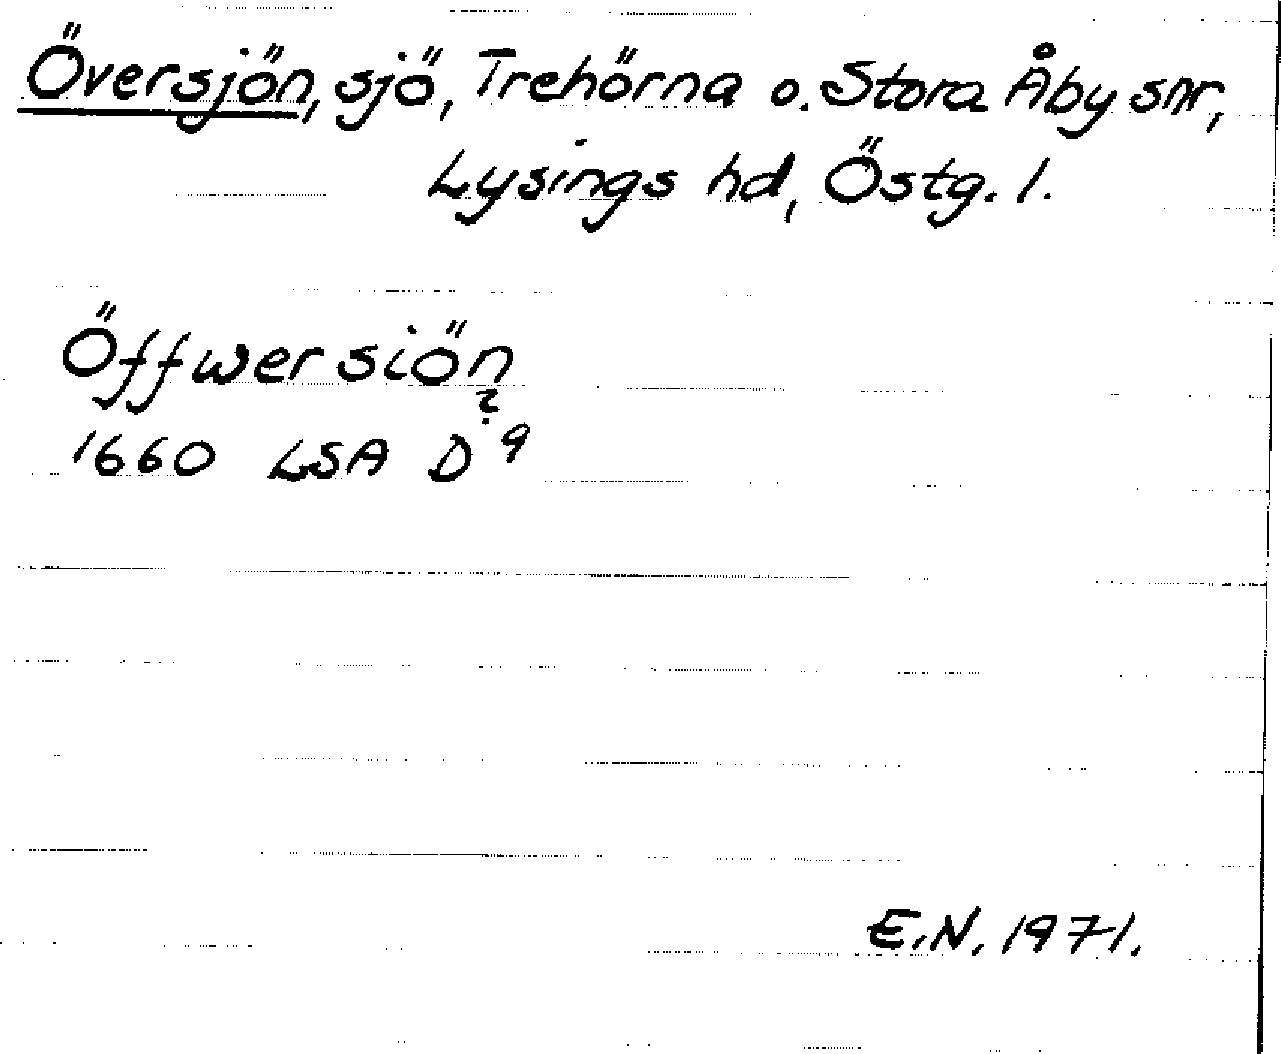 Översjön, sjö, Trehörna o. Stora Åby snr,
Lysings hd, Östg. l.
Öffwersiön
1660 LSA D? 9
E.N. 1971.